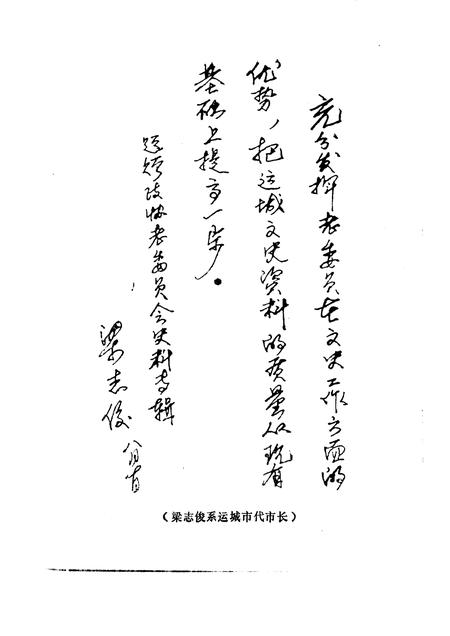 充分发挥老委员在文史工作方面的
优势，把运城文史资料的质量从现有
基础上提高一步。
题领政协老委员会史料专辑
梁志俊
八月
（梁志俊系运城市代市长）